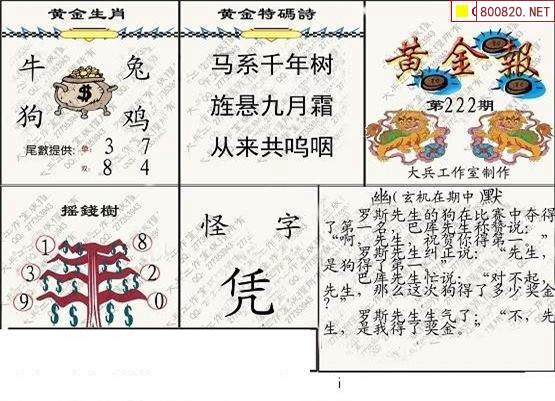 800820.NET
黄金生肖
牛 兔
狗 鸡
尾數提供: 单: 3 7
双: 8 4
黄金特碼詩
马系千年树
旌悬九月霜
从来共呜咽
黄金報
第222期
大兵工作室制作
摇錢樹
1 8
3 2
9 0
怪 字
凭
幽(玄机在期中)默
罗斯先生的狗在比赛中夺得
了第一名，巴库先生称赞说：
“啊，先生，祝贺你得第一。”
罗斯先生纠正说：“先生，
是狗得了第一。”
巴库先生忙说：“对不起，
先生，那么这次狗得了多少奖金
？”
罗斯先生生气了：“不，先
生，是我得了奖金。”
i